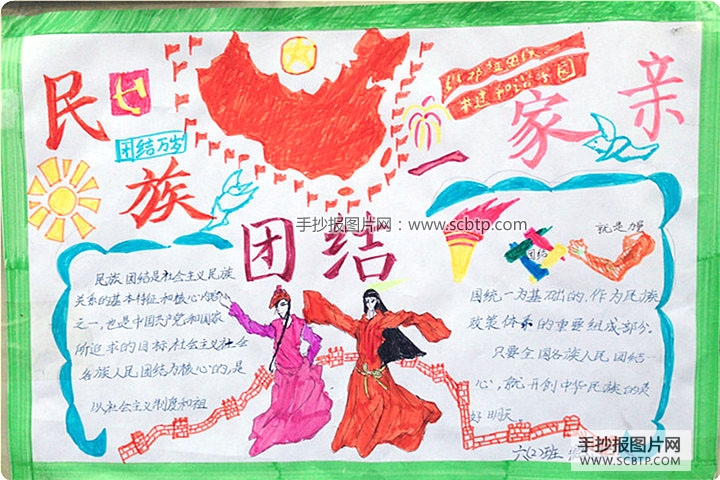 民族
团结
一家亲
团结万岁
维护祖国统一
共建和谐家园
手抄报图片网：www.scbtp.com
团结
就是力量
民族团结是社会主义民族
关系的基本特征和核心内容
之一，也是中国共产党和国家
所追求的目标.社会主义社会
各族人民团结为核心的，是
以社会主义制度和祖
国统一为基础的，作为民族
政策体系的重要组成部分.
只要全国各族人民团结一
心，就开创中华民族的美
好明天。
六(2)班
手抄报图片网
WWW.SCBTP.COM